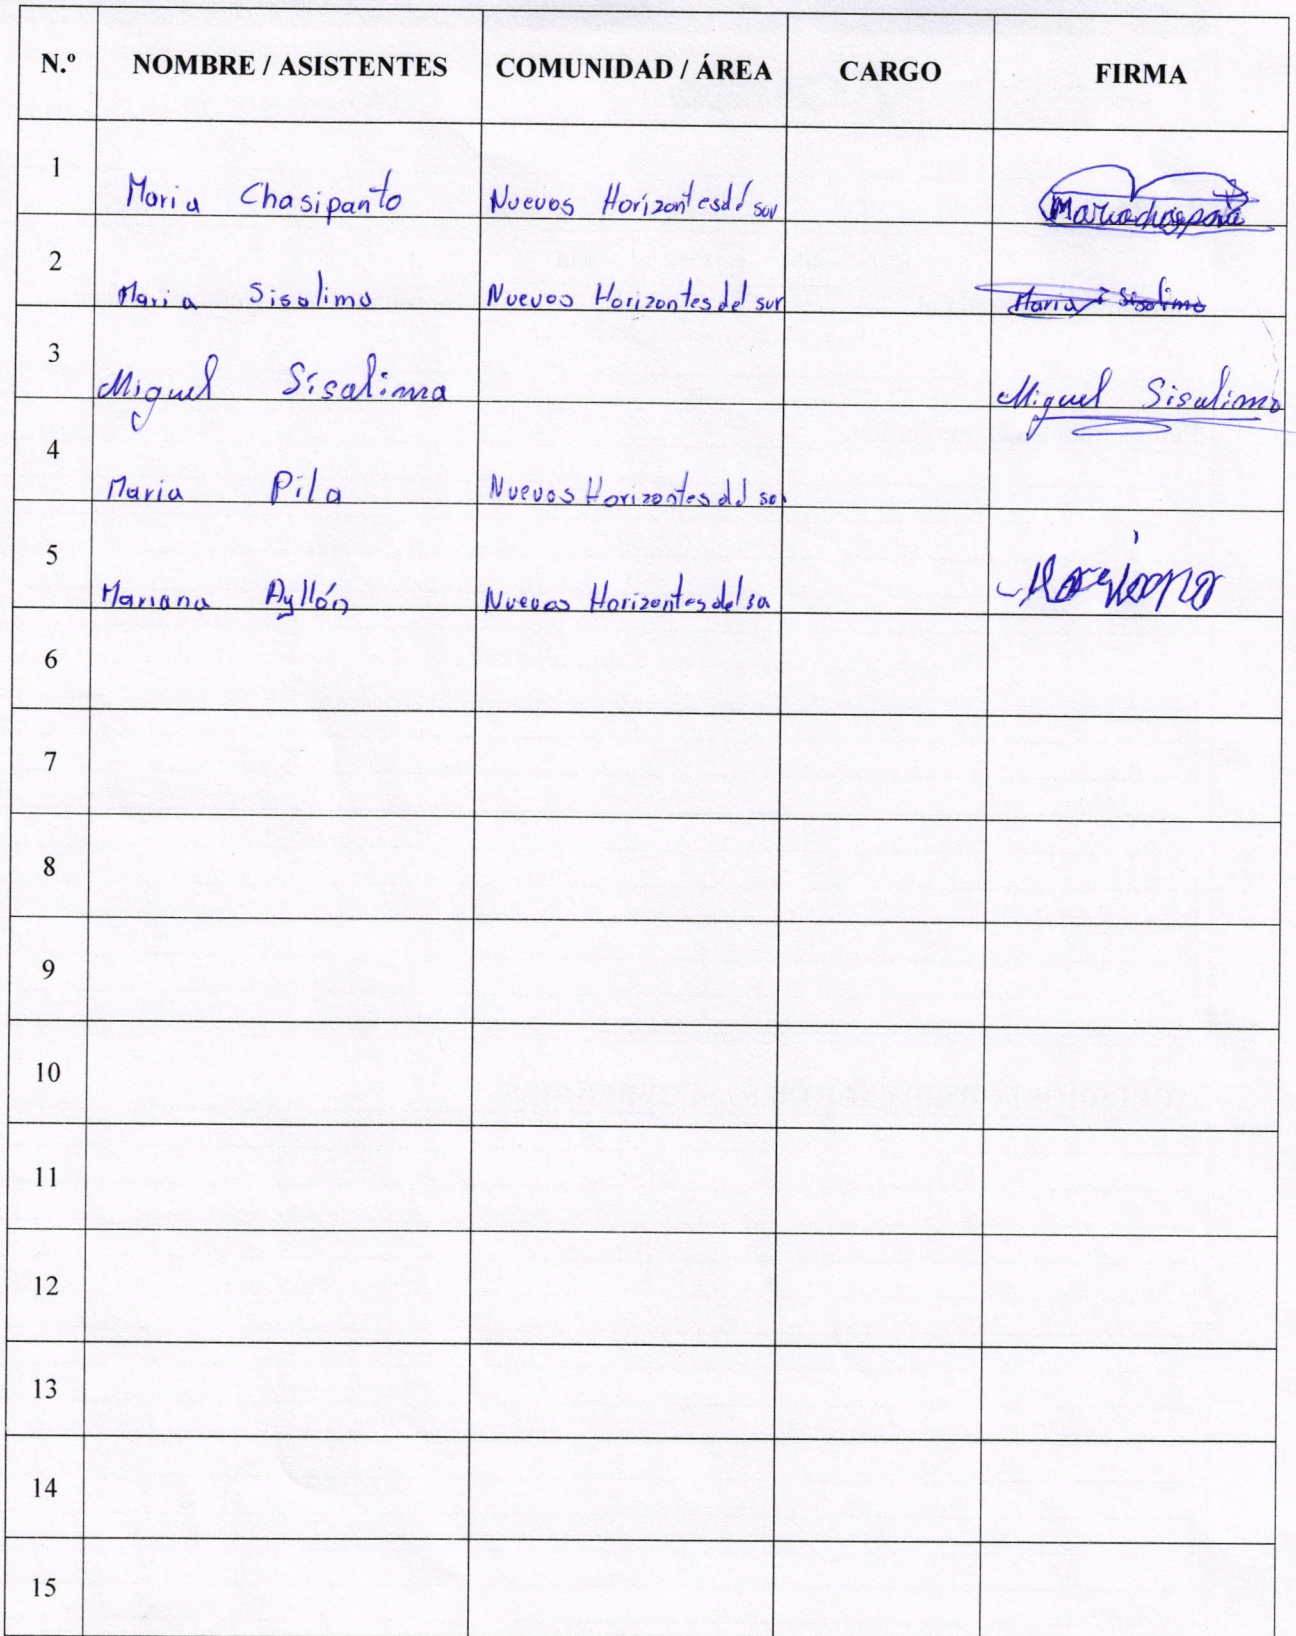 N.º NOMBRE / ASISTENTES COMUNIDAD / ÁREA CARGO FIRMA
1 Maria Chasipanto Nuevos Horizontes del sur
2 Maria Sisalima Nuevos Horizontes del sur Maria Sisalima
3 Miguel Sisalima Miguel Sisalima
4 Maria Pila Nuevos Horizontes del sur
5 Mariana Ayllón Nuevos Horizontes del su Mariana
6
7
8
9
10
11
12
13
14
15